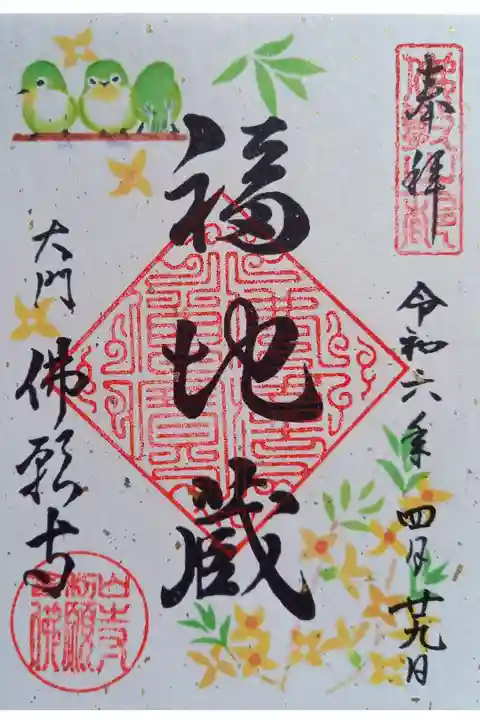 奉拝
令和六年四月廿九日
福地蔵
大門
佛願寺